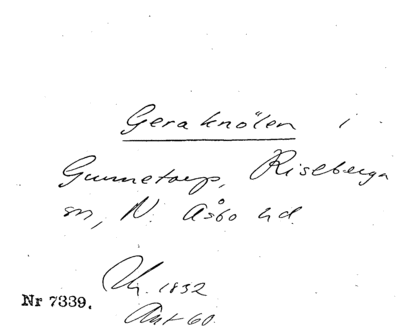 Geraknölen i
Gunnetorp, Riseberga
sn, N. Åsbo hd.
Uh. 1832
Nr 7339.
Akt 60.